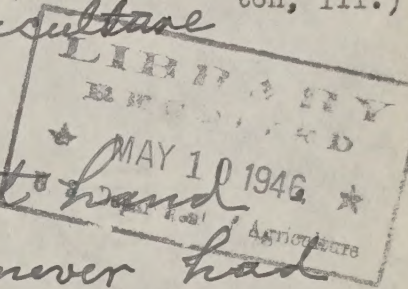 ton, Ill.)
culture
LIBRARY
RECEIVED
★ MAY 10 1946 ★
Agriculture
t hand,
never had